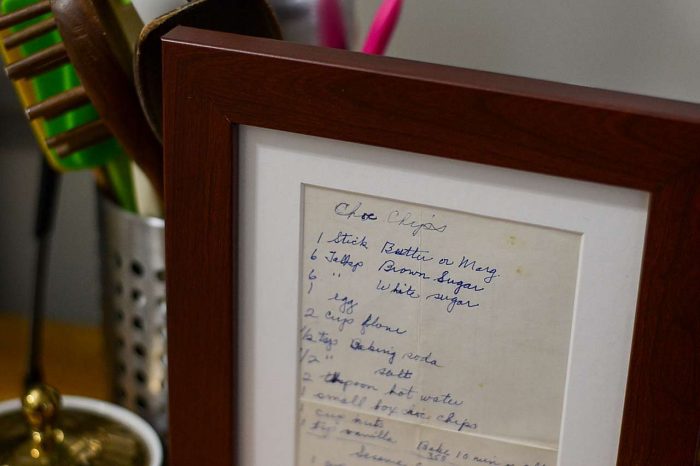 Choc Chip's
1 Stick Butter or Marg.
6 Tablsp Brown Sugar
6 " White sugar
1 egg
2 cups flour
1/2 tsp Baking soda
1/2 " salt
2 hot water
small box choc chips
1 cup nuts
1 vanilla Bake 10 min
350
Sesame